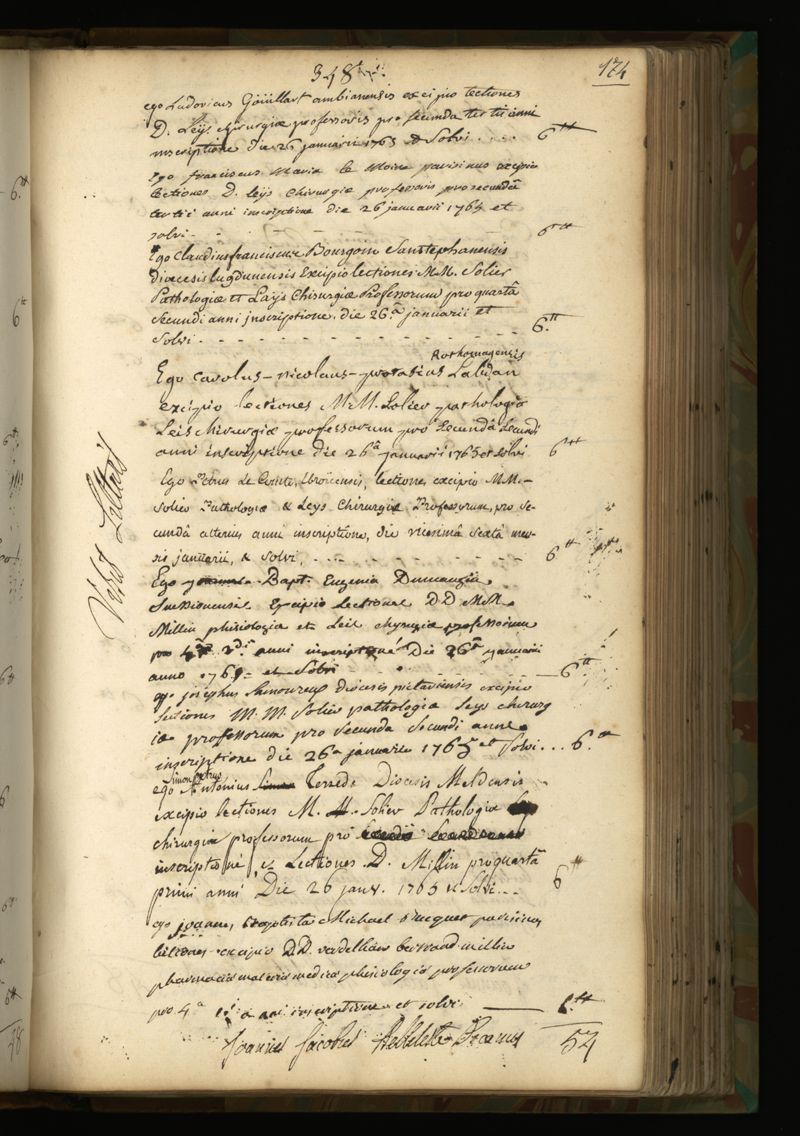 348
174
ego Ludovicus Goüillart ambianensis excipio lectiones
D. Leijs chirurgiæ professoris pro secunda tertii anni
inscriptione die 26 januarii 1765 & Solvi .... 6 tt
Ego franciscus Maria le Moine parisinus excipio
lectiones D. leijs Chirurgiæ professoris pro secundâ
tertii anni inscriptione die 26 januarii 1765 et
solvi - 6 tt
Ego Claudius franciscus Bourgoin Sanstephanensis
diœcesis lugdunensis Excipio lectiones M.M. Solier
Pathologiæ et Laÿs Chirurgiæ Professorum pro quartâ
Secundi anni jnscriptione. die 26â januarii et
Solvi - - - - - - - - - - 6. tt
Rothomagensis
Ego Carolus - nicolaus - protasius
excipio lectiones M.M. Solier pathologiæ
Leis chirurgiæ professorum pro Secundâ Secundi
anni inscriptione die 26â januarii 1765 et solvi. 6 tt
Ego Petrus Le Comte, Ebroïcensis, lectiones excipio M.M. -
Solier Pathologiæ & Leys Chirurgiæ Professorum, pro se-
cundâ alterius anni inscriptione, die vicesimâ sextâ men-
sis januarii, & solvi, - - - - - - - 6 tt
Ego Bapt. Eugenia
Suessionensis Excipio Lectiones D D M.M.
Millin phisiologiæ et Leis chyrurgiæ professorum
pro 4â 2di anni inscriptioné Die 26â januarii
anno 1765 - et Solvi - - - 6 tt
ego josephus diœcesis pictaviensis excipio
lectiones M. M. Soliev pathologiæ Leys chirurg
iæ professorum pro Secunda Secundi anni
inscriptione die 26a januarii 1765 et Solvi ... 6. tt
Simon petrus
ego Antonius Terrede Diœcesis Meldensis
excipio lectiones M. M. Soliev Pathologiæ
chirurgiæ professorum pro
inscriptioné & Lectiones D. Millin pro quartâ
primi anni Die 26 janv. 1765 & Solvi ... 6 tt
ego joannes Baptista Michael parisinus
lectiones excipio D.D. verdelhan bertrand millin
pharmaciæ materiæ medicæ phisiologiæ professorum
pro 4.a anni inscriptione et solvi — 6. tt
Joannes Jacobus
54